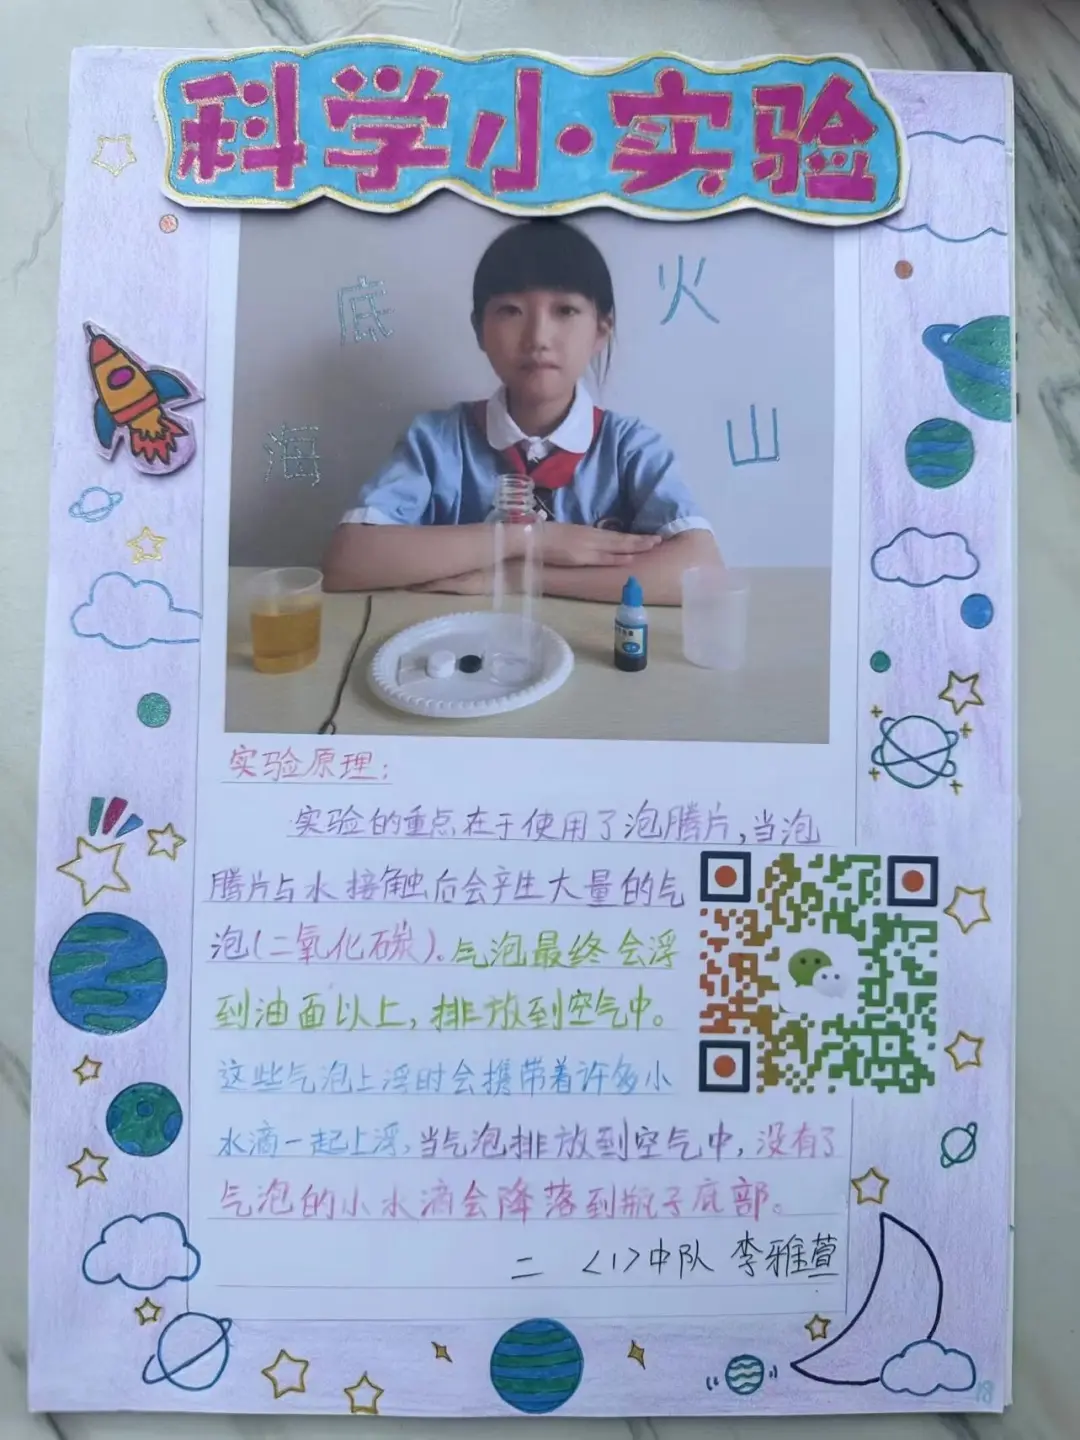 科学小实验
底 火
海 山
实验原理：
实验的重点在于使用了泡腾片，当泡
腾片与水接触后会产生大量的气
泡（二氧化碳）。气泡最终会浮
到油面以上，排放到空气中。
这些气泡上浮时会携带着许多小
水滴一起上浮，当气泡排放到空气中，没有了
气泡的小水滴会降落到瓶子底部。
二〈1〉中队 李雅萱
18